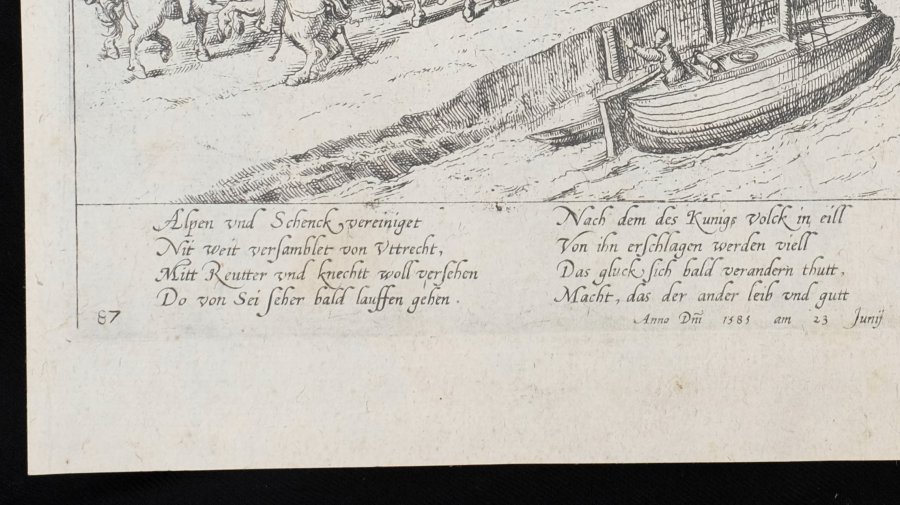 Alpen vnd Schenck vereiniget
Nit weit versamblet von Vttrecht,
Mitt Reutter vnd knechtt woll versehen
Do von Sei seher bald lauffen gehen.
Nach dem des Kunigs volck in eill
Von ihn erschlagen werden viell
Das gluck sich bald verandern thutt,
Macht, das der ander leib vnd gutt
Anno Dni 1585 am 23 Junij
87